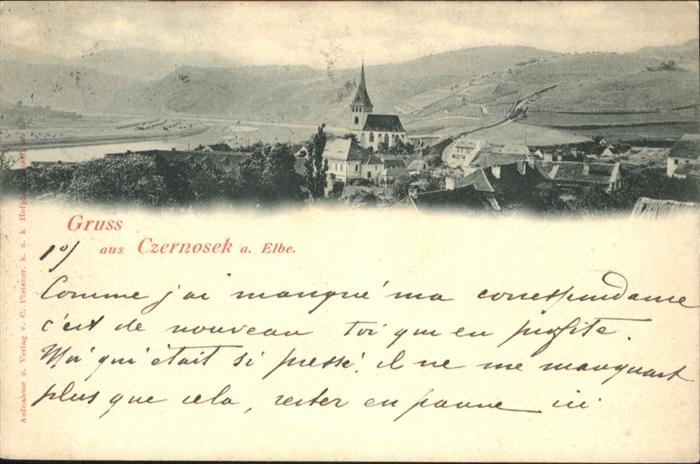 Gruss
aus Czernosek a. Elbe.
10/
Comme j'ai manqué ma correspondance
c'est de nouveau toi qui en profite.
Moi qui était si pressé, il ne me manquait
plus que cela, rester en panne ici
Aufnahme u. Verlag v. C. Pietzner, k. u. k Hofp